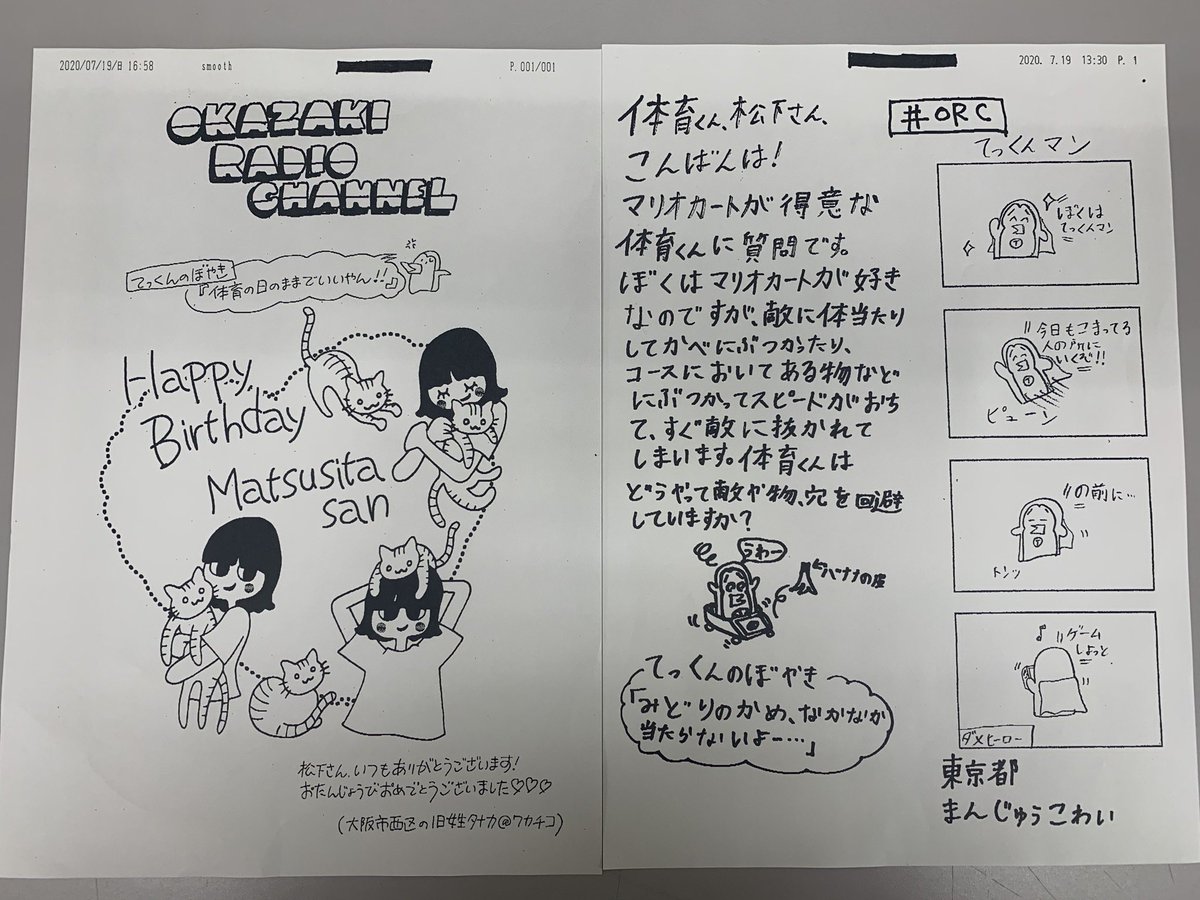 2020/07/19/日 16:58 smooth P.001/001
OKAZAKI
RADIO
CHANNEL
てっくんのぼやき
『体育の日のままでいいやん!!』
Happy
Birthday
Matsusita
san
松下さん、いつもありがとうございます!
おたんじょうびおめでとうございました♡♡♡
(大阪市西区の旧姓タナカ@ワカチコ)
2020. 7.19 13:30 P. 1
体育くん、松下さん、
こんばんは!
マリオカートが得意な
体育くんに質問です。
ぼくはマリオカートが好き
なのですが、敵に体当たり
してかべにぶつかったり、
コースにおいてある物など
にぶつかってスピードがおち
て、すぐ敵に抜かれて
しまいます。体育くんは
どうやって敵や物、穴を回避
していますか?
うわー
バナナの皮
てっくんのぼやき
「みどりのかめ、なかなか
当たらないよー…」
#ORC
てっくんマン
ぼくは
てっくんマン
今日もこまってる
人の所に
いくぞ!!
ピューン
の前に…
トンッ
♪
ゲーム
しよっと
ダメヒーロー
東京都
まんじゅうこわい